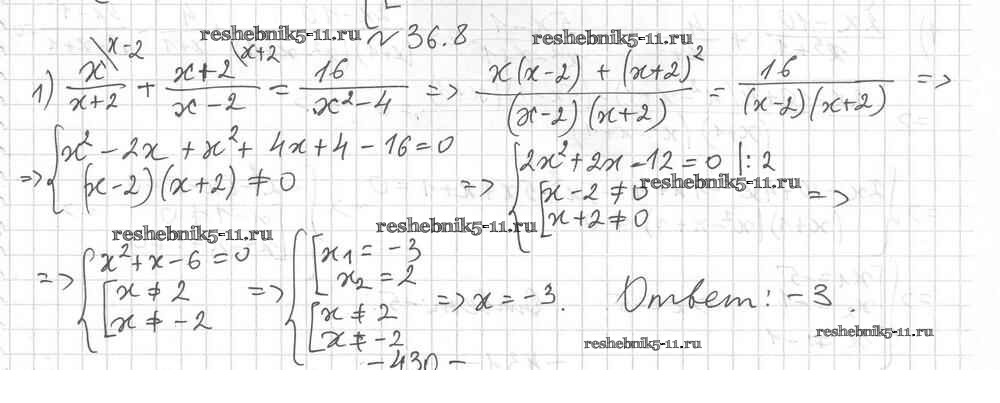 reshebnik5-11.ru № 36.8 reshebnik5-11.ru
1) x\x-2/(x+2) + x+2\x+2/(x-2) = 16/(x²-4) => (x(x-2) + (x+2)²)/((x-2)(x+2)) = 16/((x-2)(x+2)) =>
=> { x² - 2x + x² + 4x + 4 - 16 = 0
(x-2)(x+2) ≠ 0
=> { 2x² + 2x - 12 = 0 |: 2
[ x - 2 ≠ 0
x + 2 ≠ 0 =>
reshebnik5-11.ru
reshebnik5-11.ru
reshebnik5-11.ru
=> { x² + x - 6 = 0
[ x ≠ 2
x ≠ -2
=> { [ x₁ = -3
x₂ = 2
[ x ≠ 2
x ≠ -2
=> x = -3. Ответ: -3.
reshebnik5-11.ru
reshebnik5-11.ru
- 430 -